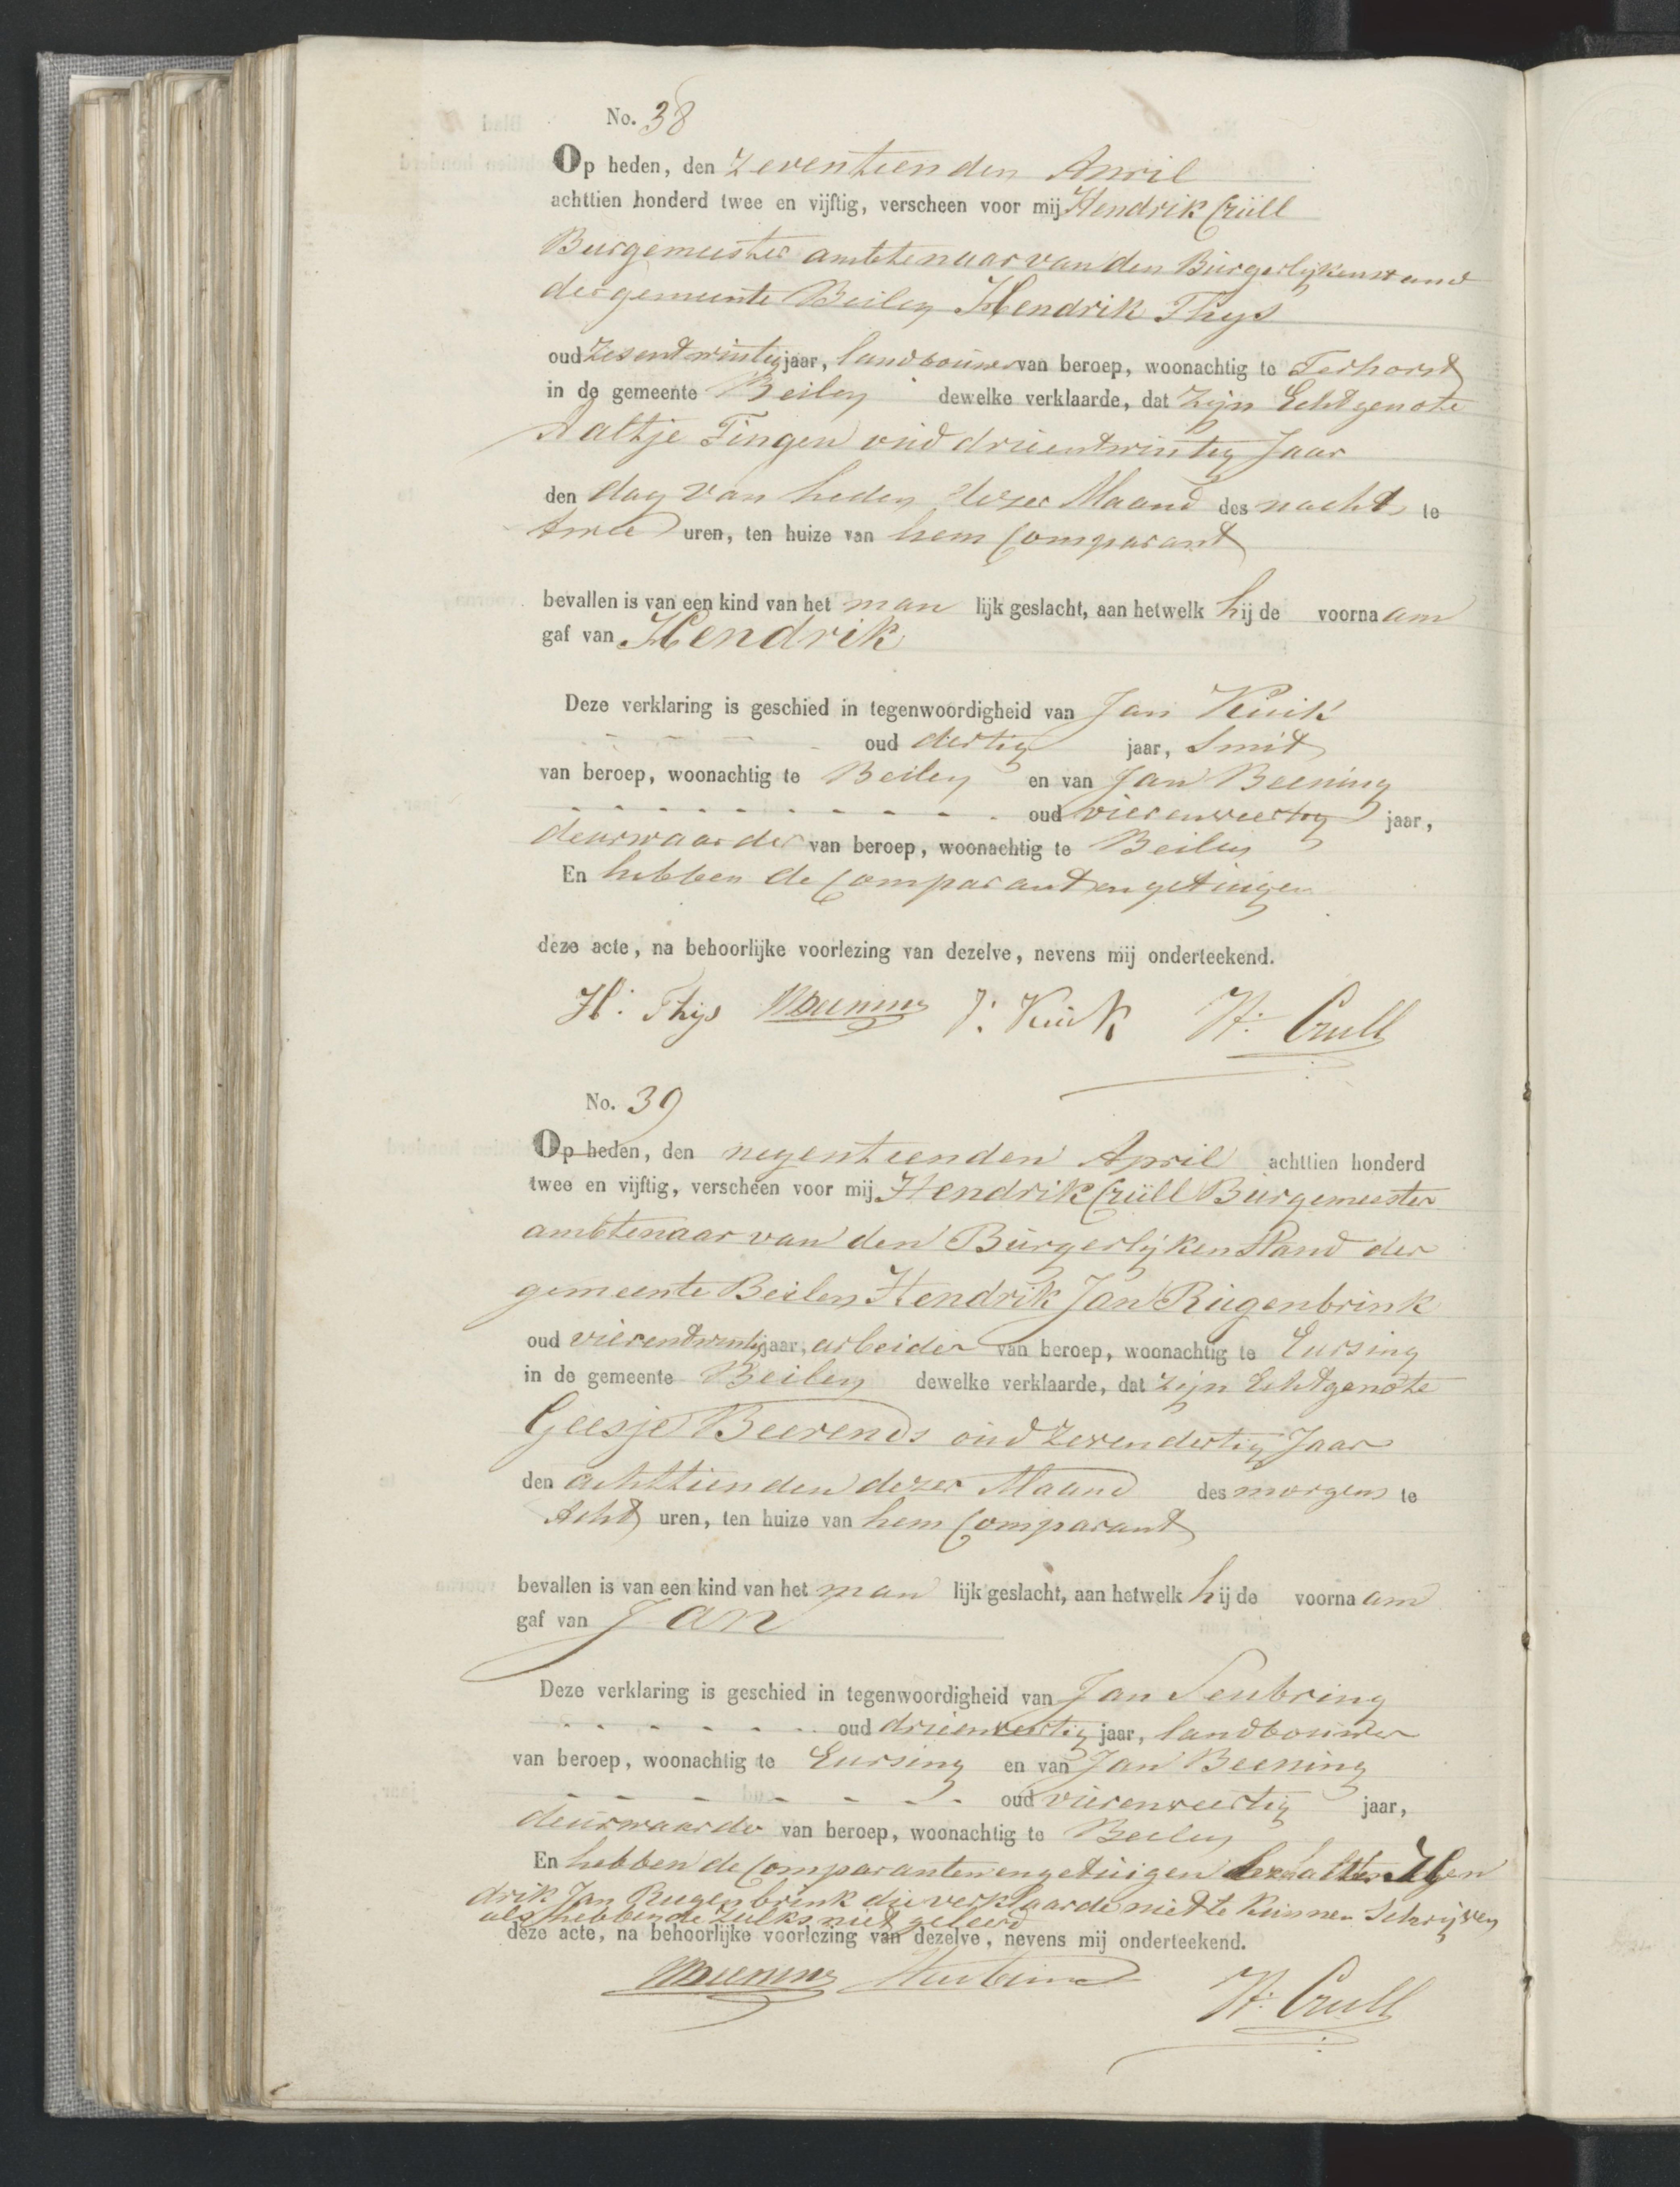 No. 38
Op heden, den zeventienden April
achttien honderd twee en vijftig, verscheen voor mij Hendrik Crüll
Burgemeester ambtenaar van den Burgerlijken stand
der gemeente Beilen Hendrik Thijs
oud zesentwintig jaar, landbouwer van beroep, woonachtig te Terhorst
in de gemeente Beilen dewelke verklaarde, dat zijn Echtgenote
Aaltje Tingen oud drieentwintig Jaar
den dag van heden dezer Maand des nachts te
twee uren, ten huize van hem Comparant
bevallen is van een kind van het man lijk geslacht, aan hetwelk hij de voornaam
gaf van Hendrik
Deze verklaring is geschied in tegenwoordigheid van Jan Kuik
oud dertig jaar, Smit
van beroep, woonachtig te Beilen en van Jan Beening
oud vierenveertig jaar,
deurwaarder van beroep, woonachtig te Beilen
En hebben de Comparant en getuigen
deze acte, na behoorlijke voorlezing van dezelve, nevens mij onderteekend.
H. Thijs JBeening J. Kuik H. Crull
No. 39
Op heden, den negentienden April achttien honderd
twee en vijftig, verscheen voor mij Hendrik Crüll Burgemeester
ambtenaar van den Burgerlijken Stand der
gemeente Beilen Hendrik Jan Rugenbrink
oud vierentwintig jaar, arbeider van beroep, woonachtig te Eursing
in de gemeente Beilen dewelke verklaarde, dat zijn Echtgenote
Geesje Beerends oud zevendertig Jaar
den achttienden dezer Maand des morgens te
Acht uren, ten huize van hem Comparant
bevallen is van een kind van het man lijk geslacht, aan hetwelk hij de voornaam
gaf van Jan
Deze verklaring is geschied in tegenwoordigheid van Jan Seubring
oud drieenveertig jaar, landbouwer
van beroep, woonachtig te Eursing en van Jan Beening
oud vierenveertig jaar,
deurwaarder van beroep, woonachtig te Beilen
En hebben de Comparanten en getuigen Hen
drik Jan Rugenbrink die verklaarde niet te kunnen Schrijven
als hebbende zulks niet geleerd
deze acte, na behoorlijke voorlezing van dezelve, nevens mij onderteekend.
JBeening H. Crull